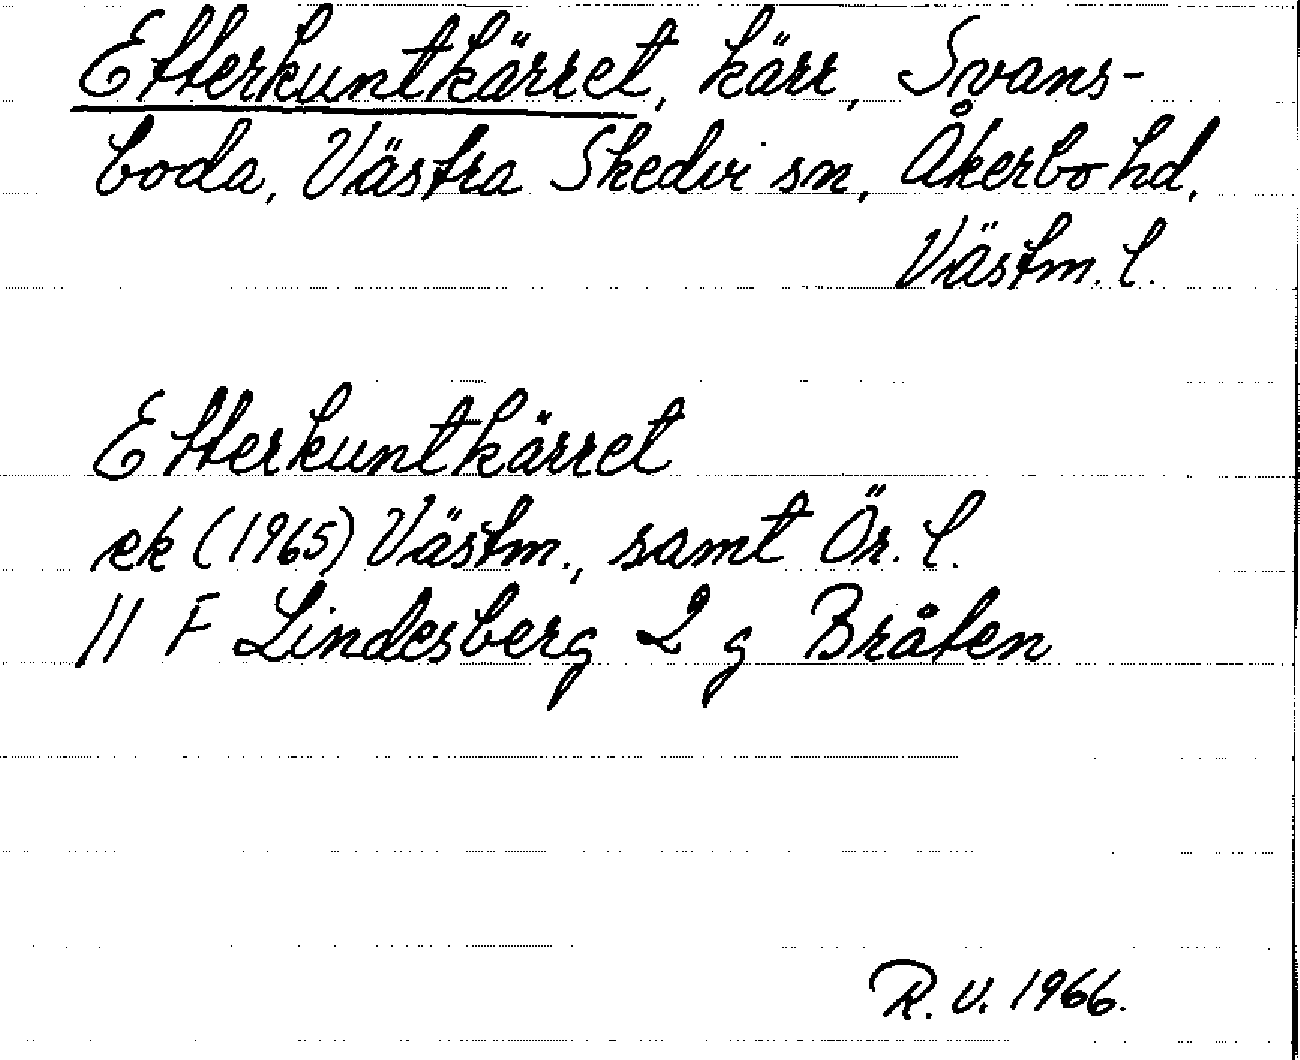 Efterkuntkärret, kärr, Svans-
boda, Västra Skedvi sn, Åkerbo hd,
Västm. l.
Efterkuntkärret
ek (1965) Västm., samt Ör. l.
11 F Lindesberg 2 g Bråten
R. U. 1966.